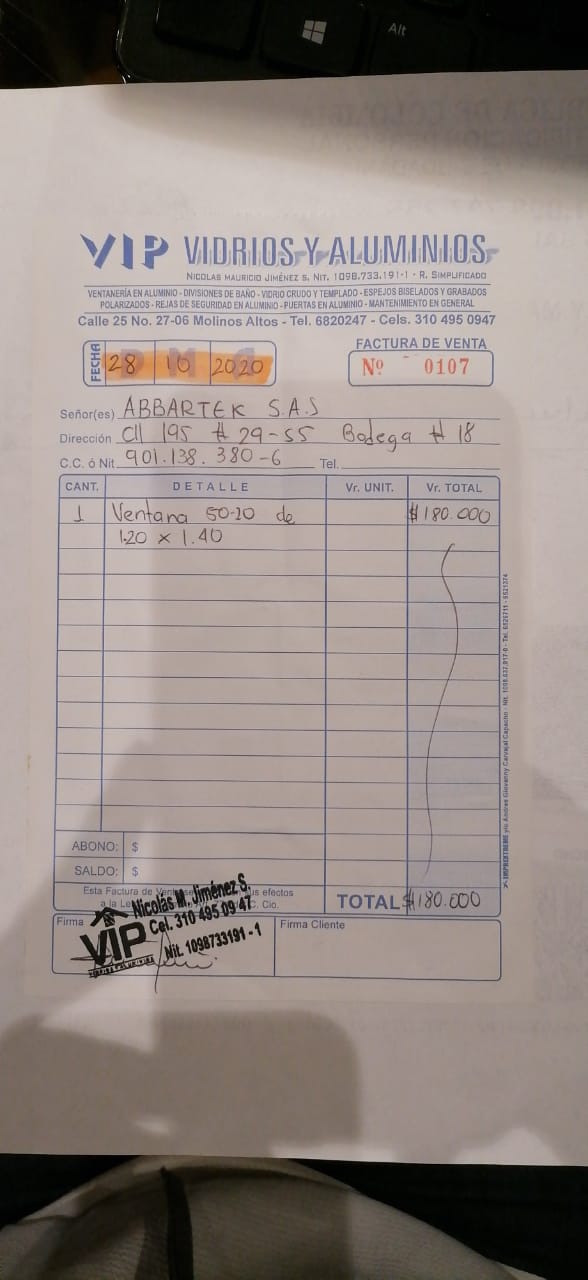 Alt
VIP VIDRIOS Y ALUMINIOS
NICOLAS MAURICIO JIMÉNEZ S. NIT. 1098.733.191-1 - R. SIMPLIFICADO
VENTANERÍA EN ALUMINIO - DIVISIONES DE BAÑO - VIDRIO CRUDO Y TEMPLADO - ESPEJOS BISELADOS Y GRABADOS
POLARIZADOS - REJAS DE SEGURIDAD EN ALUMINIO - PUERTAS EN ALUMINIO - MANTENIMIENTO EN GENERAL
Calle 25 No. 27-06 Molinos Altos - Tel. 6820247 - Cels. 310 495 0947
FECHA 28 10 2020
D M A
FACTURA DE VENTA
Nº 0107
Señor(es) ABBARTEK S.A.S
Dirección Cll 195 # 29-55 Bodega # 18
C.C. ó Nit. 901.138.380-6 Tel.
CANT. DETALLE Vr. UNIT. Vr. TOTAL
1 Ventana 50-20 de $180.000
1.20 x 1.40
ABONO: $
SALDO: $
Esta Factura de efectos
a la Cio.
TOTAL $180.000
Firma
Firma Cliente
Nicolás M. Jiménez S.
VIP Cel. 310 495 09 47
Nit. 1098733191-1